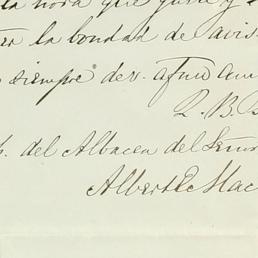 la hora que guste y
la bondad de avis
siempre de v. afmo am
Q. B. 
del Albacea del Señor
Albert E. Mac